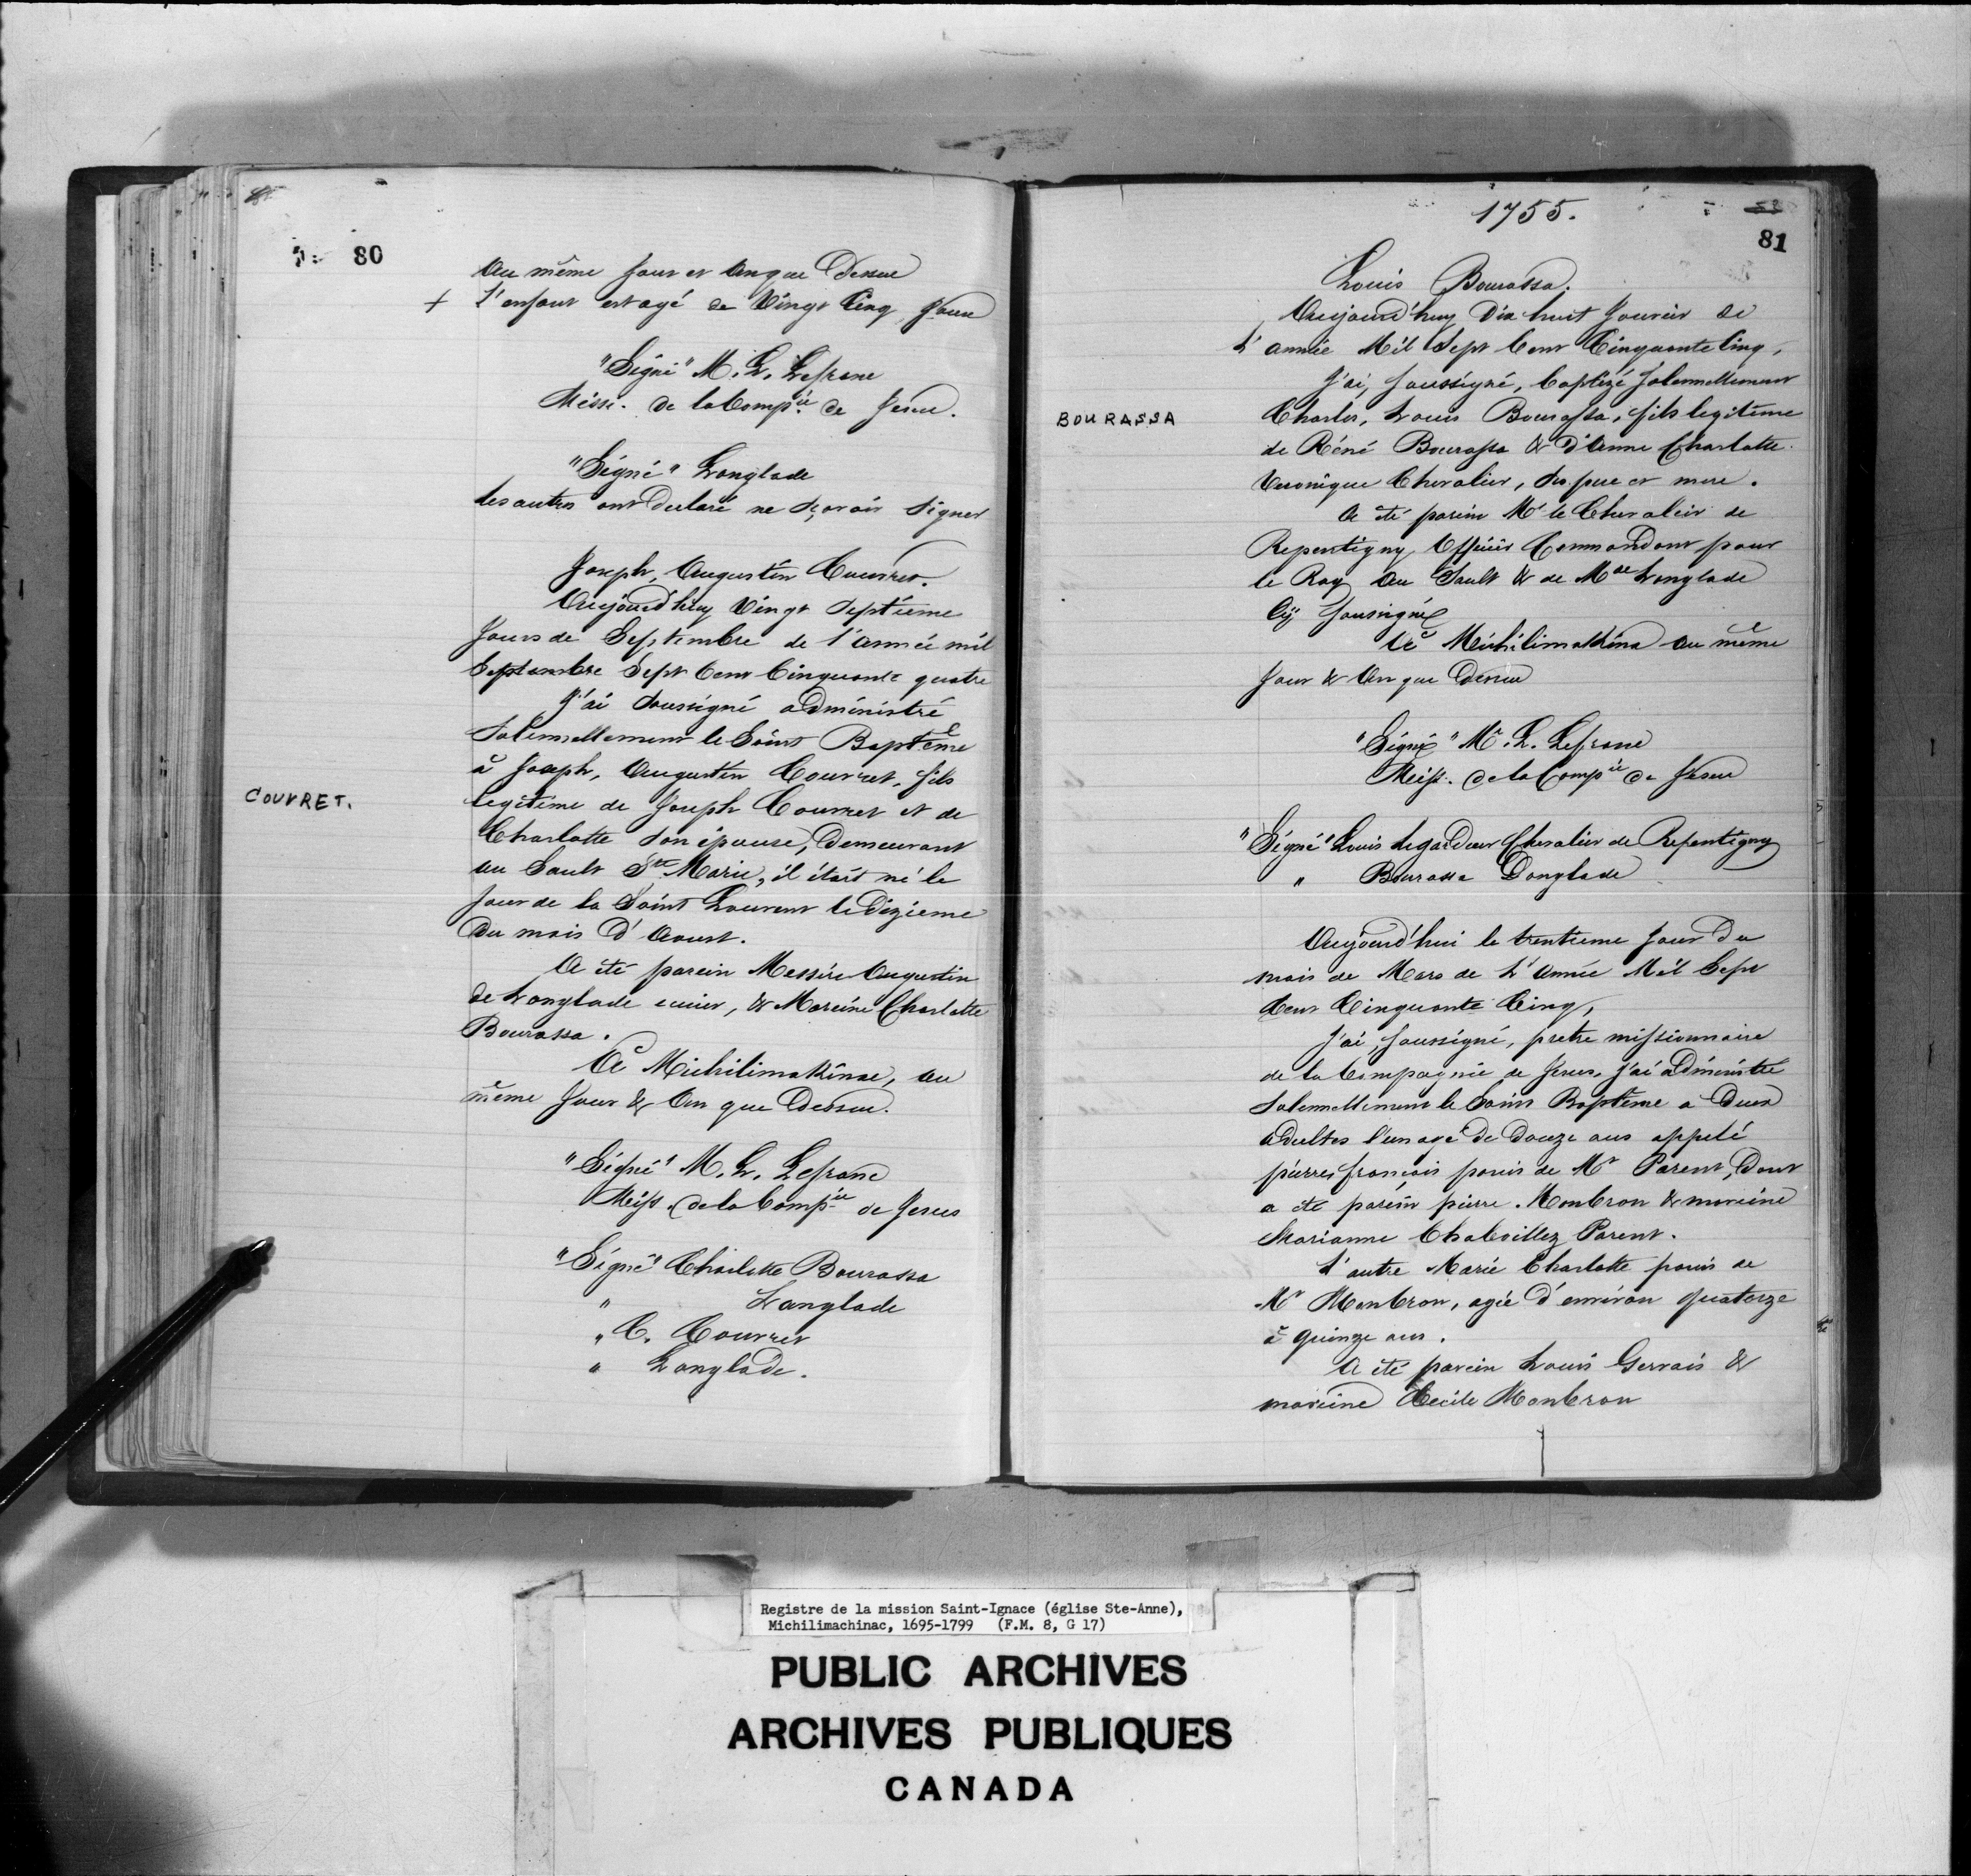 80
Au même Jour et An que Dessus
+ L'enfant est agé de Vingt Cinq Jours
"Signé" M. L. Lefranc
Miss. de la Comp.ie de Jesus.
"Signé" Langlade
les autres ont Declaré ne sçavoir signer
Joseph, Augustin Couvret.
Aujourd'huy Vingt Septieme
Jours de Septembre de l'année mil
Septembre Sept Cent Cinquante quatre
J'ai Soussigné administré
Solennellement le Saint Baptême
à Joseph, Augustin Couvret, fils
COUVRET.
legitime de Joseph Couvret et de
Charlotte son épouse, Demeurant
au Sault Ste Marie, il était né le
Jour de la Saint Laurent le Dizieme
Du mois D'Aoust.
A été parein Messire Augustin
de Langlade ecuier, & Mareine Charlotte
Bourassa.
A Michilimakinac, au
même Jour & An que Dessus.
"Signé" M. L. Lefranc
Miss. de la Comp.ie de Jesus
"Signé" Charlotte Bourassa
" Langlade
" C. Couvret
" Langlade.
1755.
81
Louis Bourassa.
Aujourd'huy Dix huit Janvier de
L'année Mil Sept Cent Cinquante Cinq,
J'ai, Soussigné, baptizé Solennellement
BOURASSA
Charles, Louis Bourassa, fils legitime
de Réné Bourassa & D'Anne Charlotte
Veronique Chevalier, ses pere et mere.
A été parein Mr le Chevaleir de
Repentigny Officier Commandant pour
le Roy au Sault & de Mde Langlade
Cy Soussignés
A Michilimakina au même
Jour & An que Dessus
"Signé" Mr. L. Lefranc
Miss. de la Comp.ie de Jesus
"Signé" Louis Legardeur Chevalier de Repentigny
" Bourassa Langlade
Aujourd'hui le trentieme Jour Du
mois de Mars de L'Année Mil Sept
Cent Cinquante Cinq,
J'ai, Soussigné, pretre missionnaire
de la Compagnie de Jesus, J'ai administré
Solennellement le Saint Baptême a Deux
adultes l'un agé De Douze ans appelé
pierre, francois panis de Mr Parent, Dont
a été parein pierre. Monbron & mareine
Marianne Chaboillez Parent.
L'autre Marie Charlotte panis de
Mr Monbron, agée D'environ Quatorze
à Quinze ans.
A été parein Louis Gervais &
mareine Cecile Monbron
Registre de la mission Saint-Ignace (église Ste-Anne),
Michilimachinac, 1695-1799 (F.M. 8, G 17)
PUBLIC ARCHIVES
ARCHIVES PUBLIQUES
CANADA